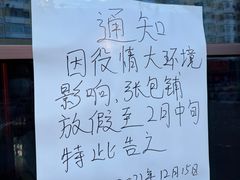 通知
因役情大环境
影响,张包铺
放假至2月中旬
特此告之
2021年12月15日